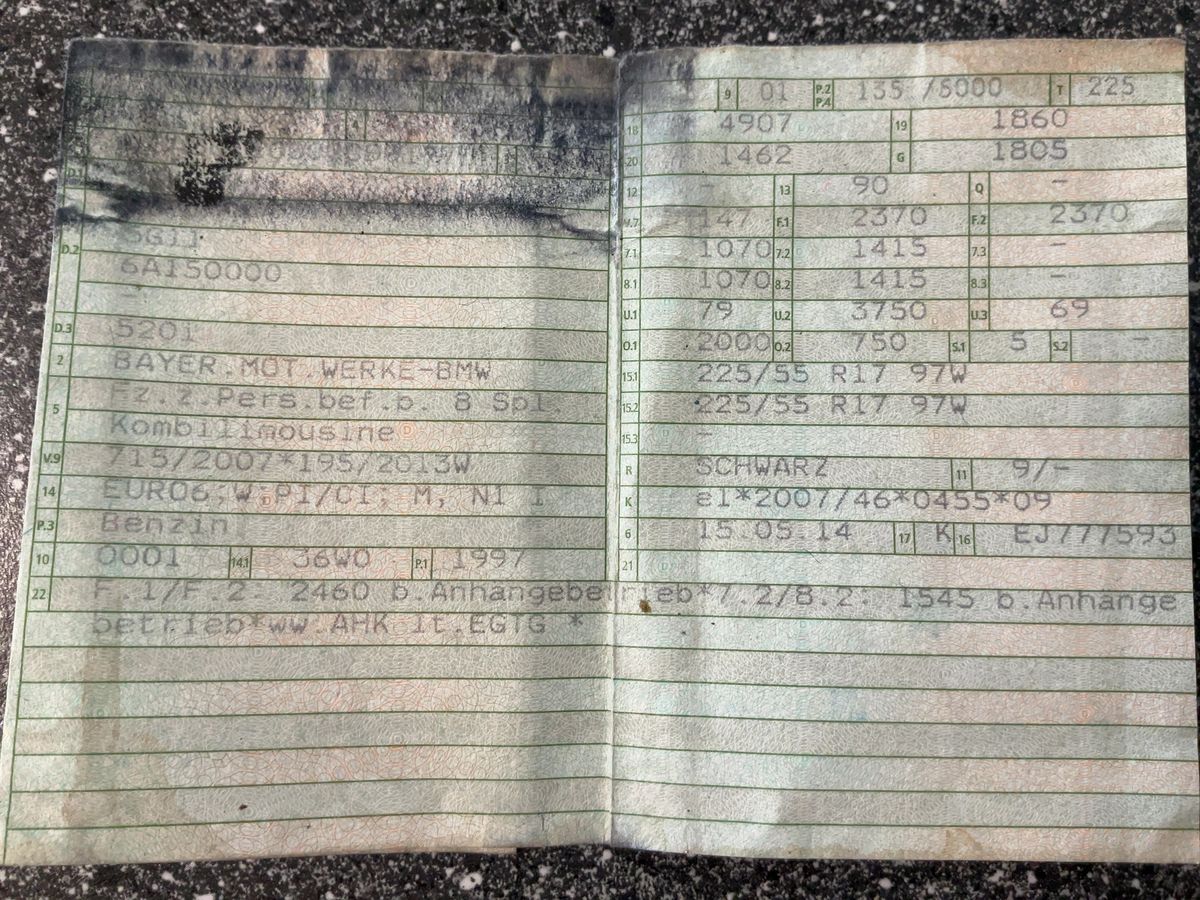 9 01 P.2 P.4 135 /5000 T 225
18 4907 19 1860
20 1462 G 1805
12 - 13 90 Q -
V.7 147 F.1 2370 F.2 2370
7.1 1070 7.2 1415 7.3 -
8.1 1070 8.2 1415 8.3 -
U.1 79 U.2 3750 U.3 69
O.1 2000 O.2 750 S.1 5 S.2 -
15.1 225/55 R17 97W
15.2 225/55 R17 97W
15.3 -
R SCHWARZ 11 9/-
K e1*2007/46*0455*09
6 15.05.14 17 K 16 EJ777593
21
D.1
D.2 5G11
6A150000
-
D.3 520i
2 BAYER.MOT.WERKE-BMW
5 Fz.z.Pers.bef.b. 8 Spl.
Kombilimousine
V.9 715/2007*195/2013W
14 EURO6;W;PI/CI; M, N1 I
P.3 Benzin
10 0001 14.1 36W0 P.1 1997
22 F.1/F.2: 2460 b.Anhängebetrieb*7.2/8.2: 1545 b.Anhänge
betrieb*ww.AHK lt.EGTG *